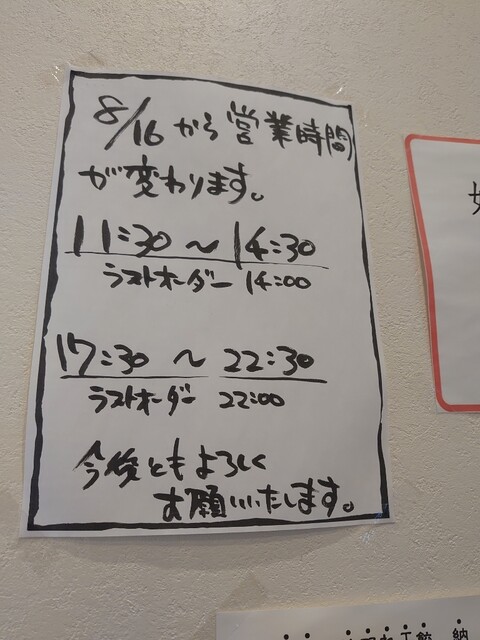 8/16から営業時間
が変わります。
11:30〜14:30
ラストオーダー 14:00
17:30 〜 22:30
ラストオーダー 22:00
今後ともよろしく
お願いいたします。